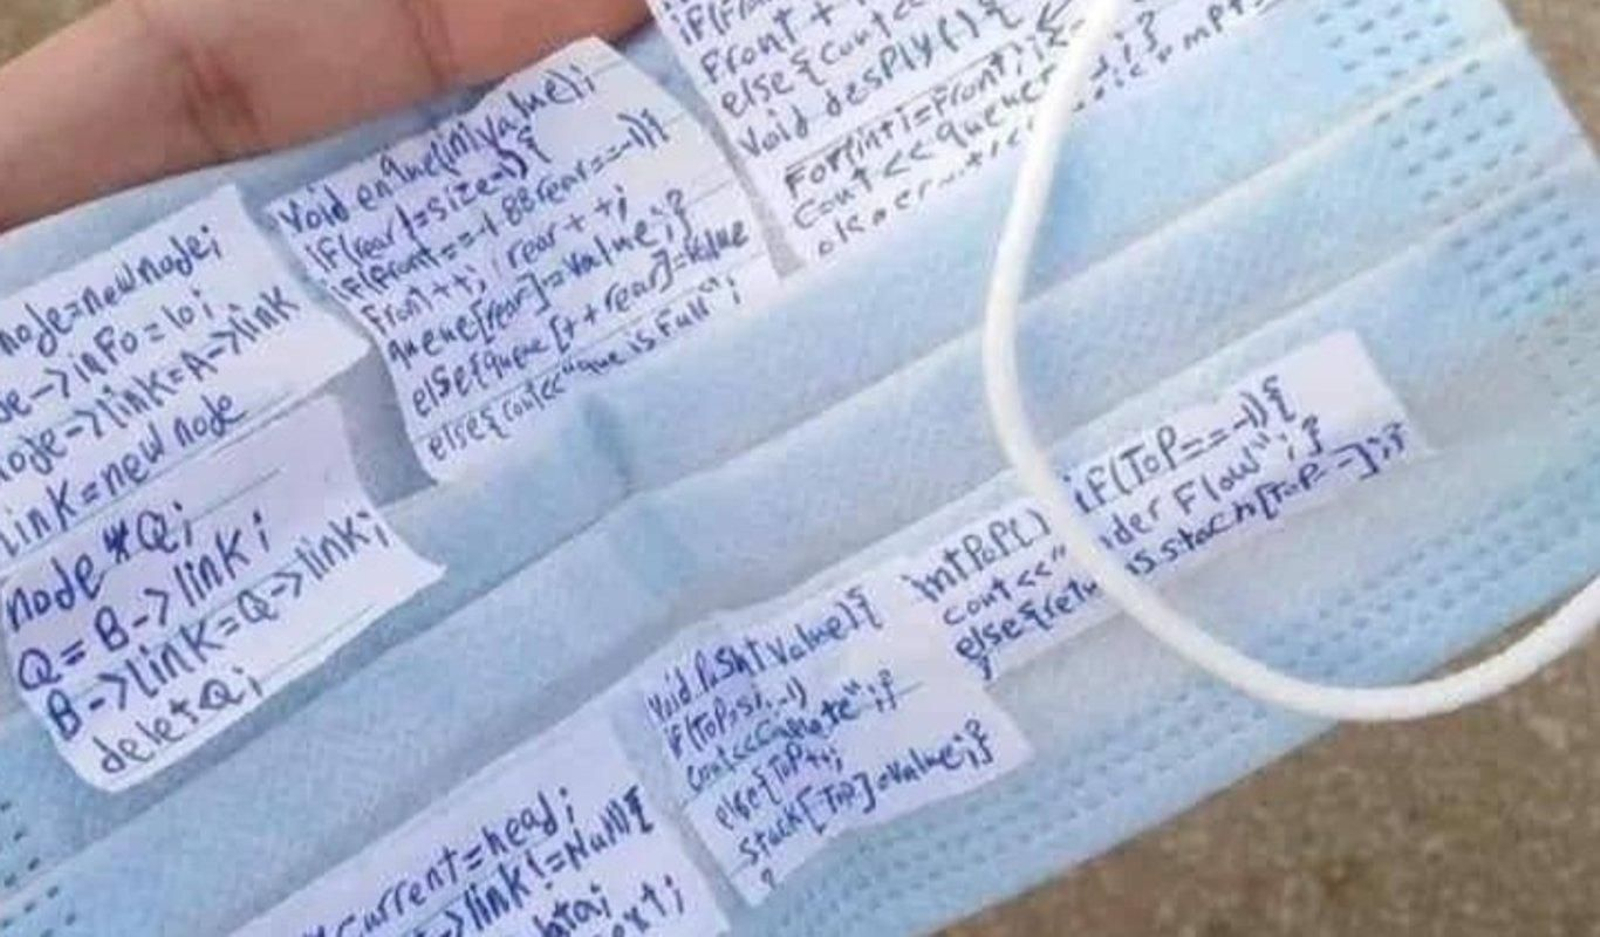 node=newnode;
->info=10;
node->link=A->link
link=newnode
node *Q;
Q=B->link;
B->link=Q->link;
deletQ;
void enque(int value);
if(rear!=size-1){
if(front==-1 88 rear==-1){
front++; rear++;
queue[rear]=value;;}
else{queue[++rear]=value
else{cout<<"que is full";
Front +
else{cout<<
void desply(){
For(int i=Front;i<
cout<<queue
int pop()
if(Top==-1){
cout<<" der Flow";;}
else{retu stach[Top--];;}
}
void Psh value){
if(Top
cout<<
else{Top++;
stack[Top]=value;;}
}
current=head;
->link!=Null{
data;